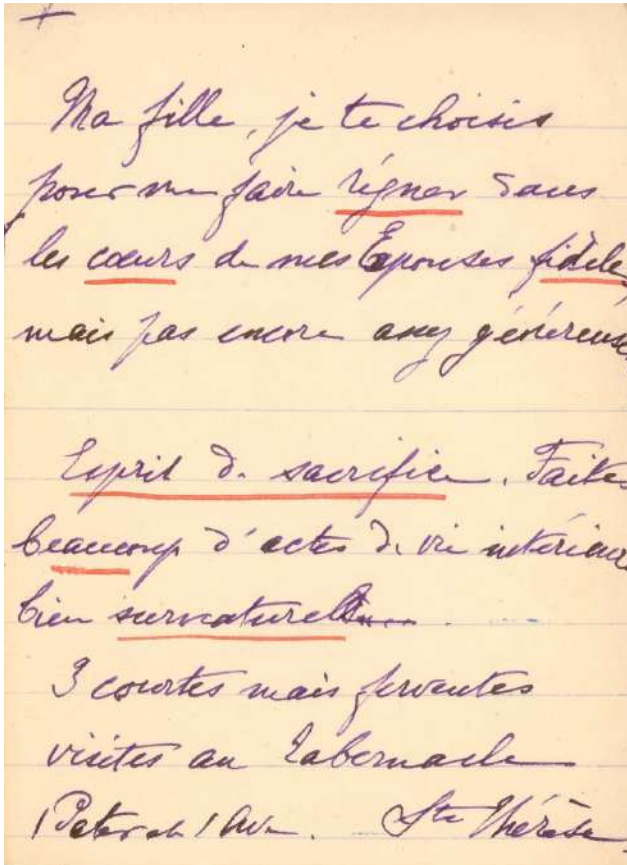 Ma fille, je te choisis
pour me faire régner dans
les cœurs de mes Epouses fidèle
mais pas encore assez généreuse
Esprit de sacrifice. Faites
beaucoup d'actes de vie intérieure
bien surnaturelle....
3 courtes mais ferventes
visites au Tabernacle
1 Pater et 1 Ave. Ste Thérèse